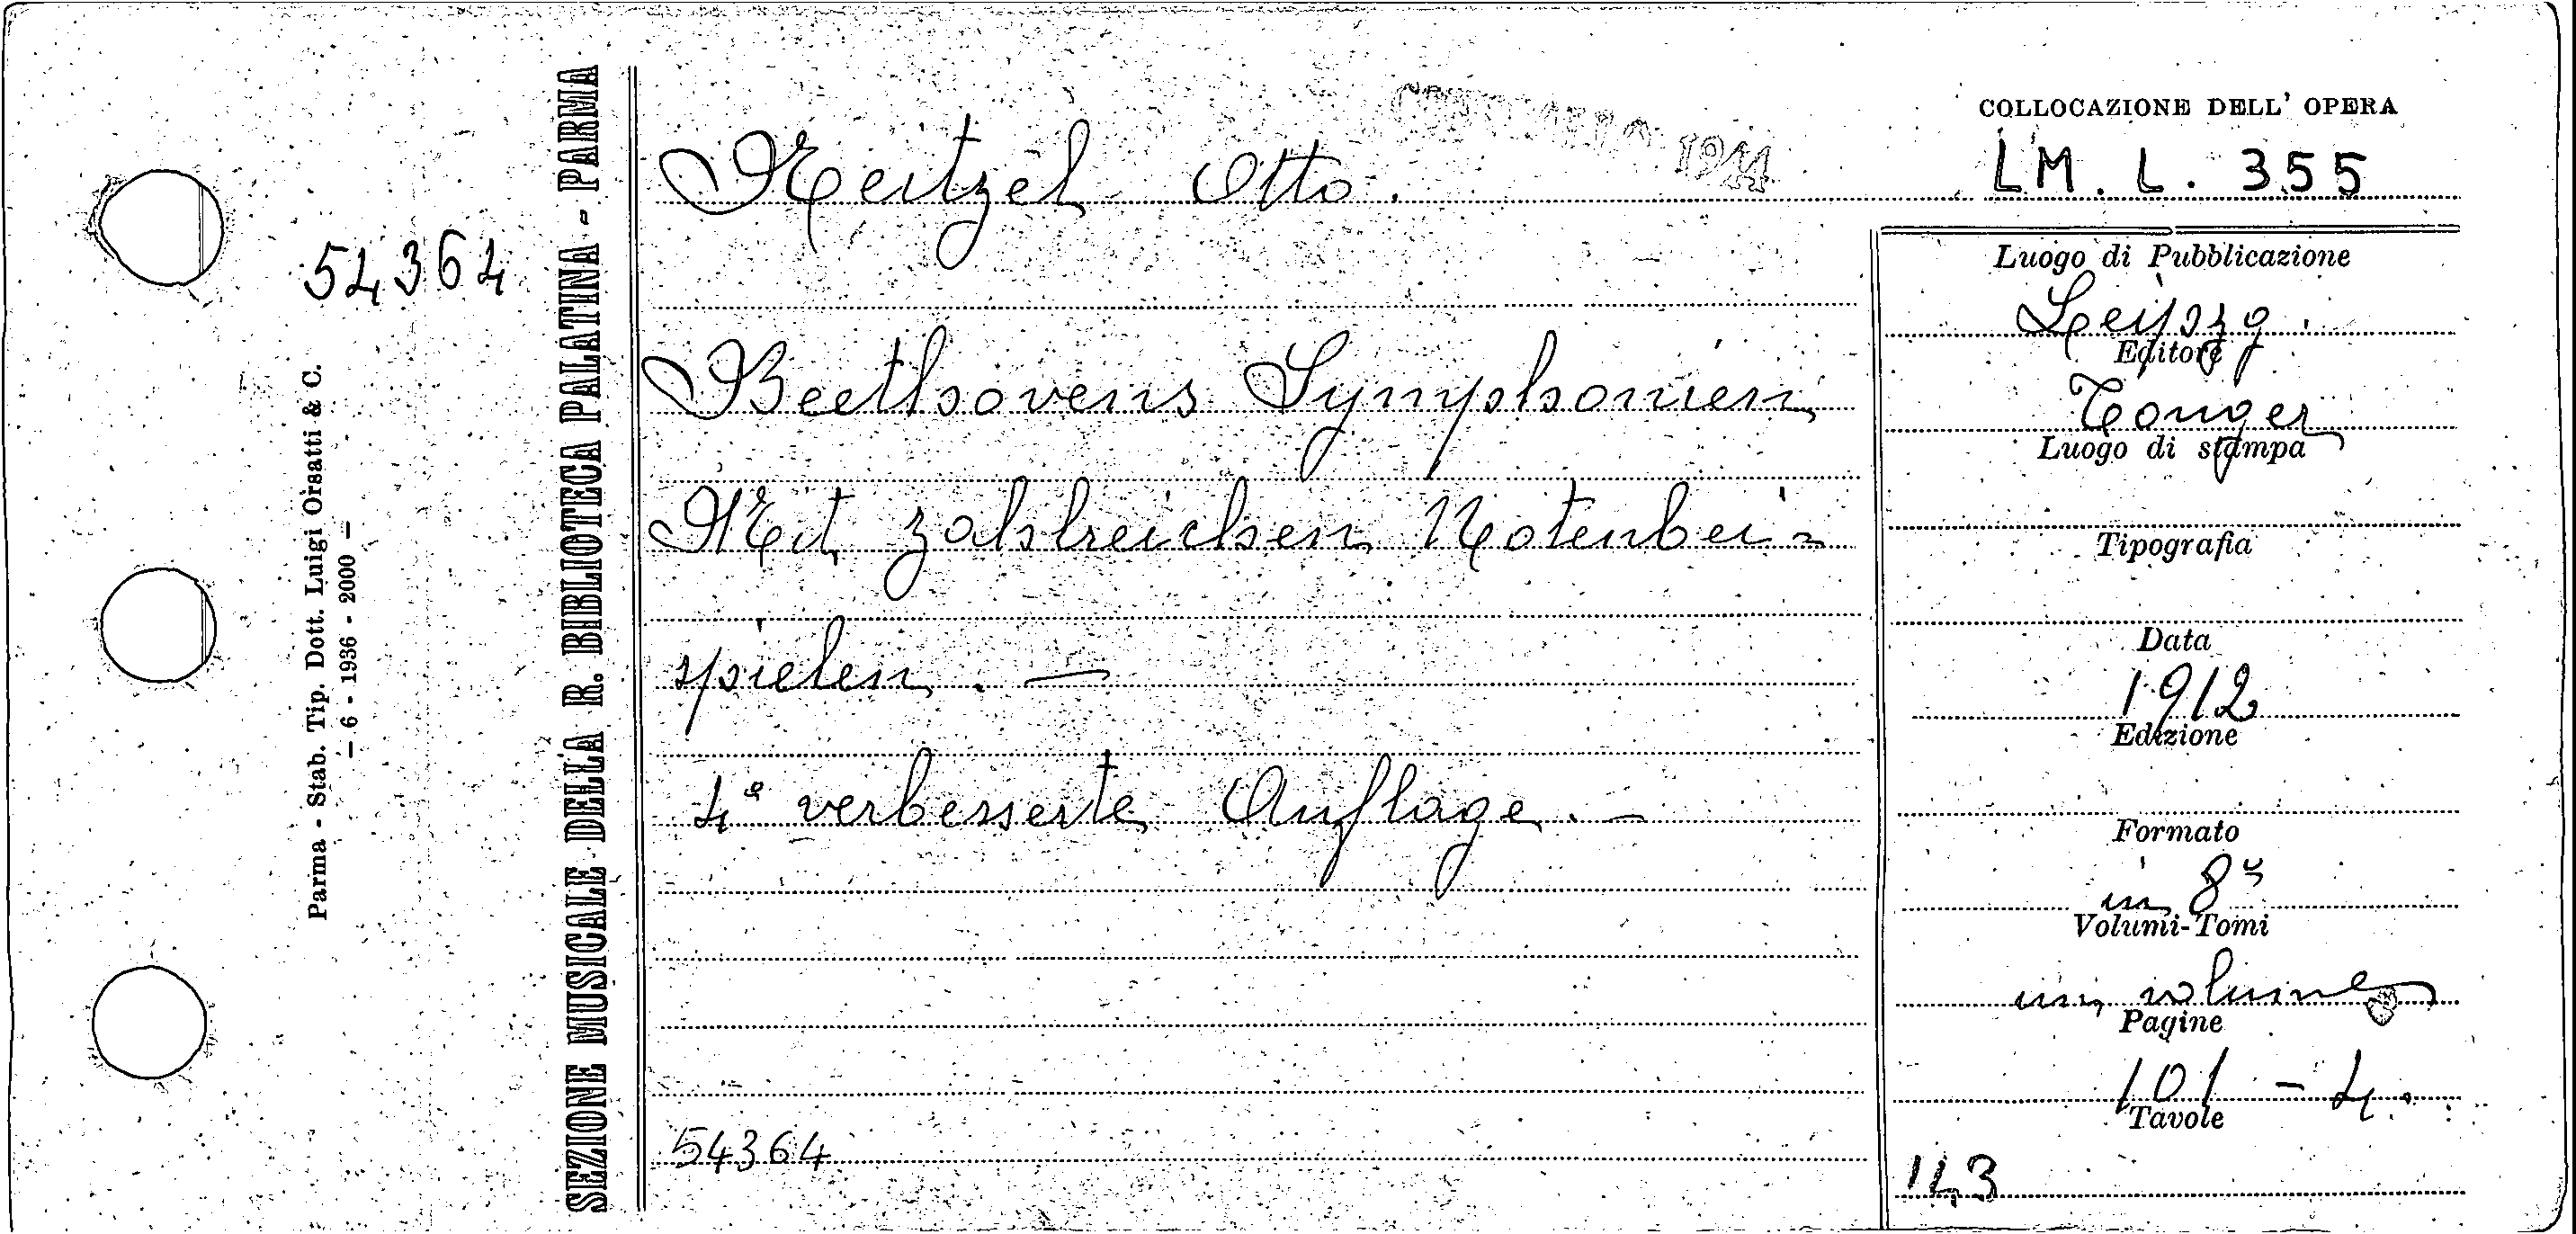 CONTROLLATO 1944
COLLOCAZIONE DELL' OPERA
LM. L. 355
Neitzel Otto.
54364
Luogo di Pubblicazione
Leipzg.
Editore
Tonger
Luogo di stampa
Tipografia
Data
1912
Edizione
Formato
in 8º
Volumi-Tomi
un volume
Pagine
101 - 4.
Tavole
143
Beethovens Symphonien
Mit zahlreichen Notenbei=
spielen. —
4ª verbesserte Auflage. —
54364
SEZIONE MUSICALE DELLA R. BIBLIOTECA PALATINA - PARMA
Parma - Stab. Tip. Dott. Luigi Orsatti & C.
— 6 - 1936 - 2000 —